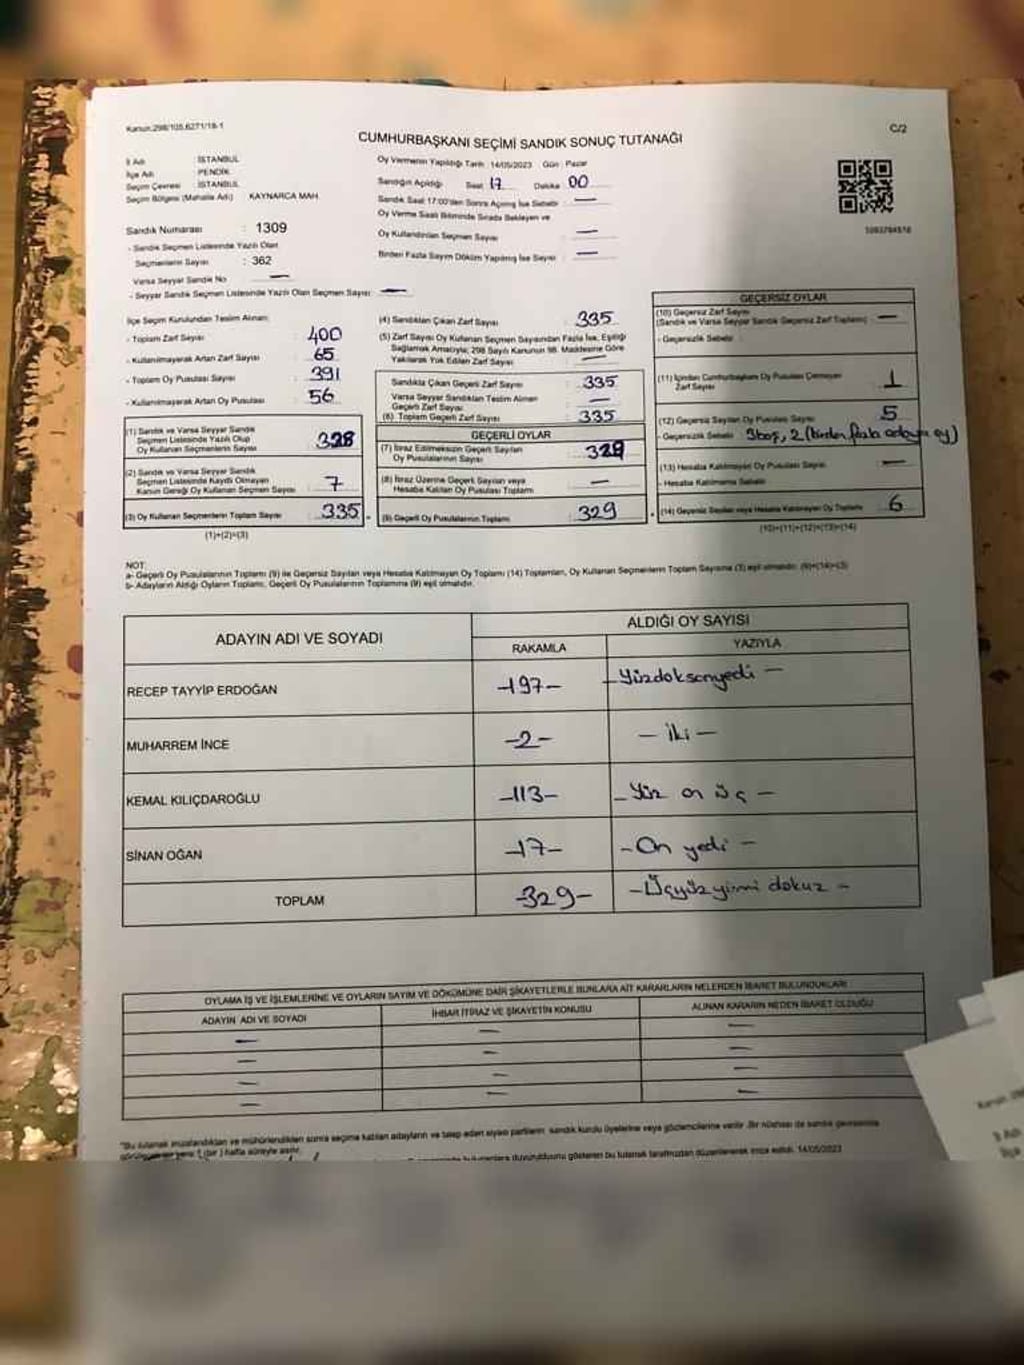 Kanun:298/105,6271/18-1
C/2
CUMHURBAŞKANI SEÇİMİ SANDIK SONUÇ TUTANAĞI
İl Adı : İSTANBUL
İlçe Adı : PENDİK
Seçim Çevresi : İSTANBUL
Seçim Bölgesi (Mahalle Adı) : KAYNARCA MAH.
Sandık Numarası : 1309
- Sandık Seçmen Listesinde Yazılı Olan
Seçmenlerin Sayısı : 362
Varsa Seyyar Sandık No —
- Seyyar Sandık Seçmen Listesinde Yazılı Olan Seçmen Sayısı: —
Oy Vermenin Yapıldığı Tarih : 14/05/2023 Gün : Pazar
Sandığın Açıldığı Saat 17 Dakika 00
Sandık Saat 17:00'den Sonra Açılmış İse Sebebi : —
Oy Verme Saati Bitiminde Sırada Bekleyen ve
Oy Kullandırılan Seçmen Sayısı : —
Birden Fazla Sayım Döküm Yapılmış İse Sayısı : —
İlçe Seçim Kurulundan Teslim Alınan:
- Toplam Zarf Sayısı : 400
- Kullanılmayarak Artan Zarf Sayısı : 65
- Toplam Oy Pusulası Sayısı : 391
- Kullanılmayarak Artan Oy Pusulası : 56
(1) Sandık ve Varsa Seyyar Sandık
Seçmen Listesinde Yazılı Olup
Oy Kullanan Seçmenlerin Sayısı : 328
(2) Sandık ve Varsa Seyyar Sandık
Seçmen Listesinde Kayıtlı Olmayan
Kanun Gereği Oy Kullanan Seçmen Sayısı : 7
(3) Oy Kullanan Seçmenlerin Toplam Sayısı : 335
(1)+(2)=(3)
(4) Sandıktan Çıkan Zarf Sayısı : 335
(5) Zarf Sayısı Oy Kullanan Seçmen Sayısından Fazla İse, Eşitliği
Sağlamak Amacıyla; 298 Sayılı Kanunun 98. Maddesine Göre
Yakılarak Yok Edilen Zarf Sayısı : —
Sandıkta Çıkan Geçerli Zarf Sayısı : 335
Varsa Seyyar Sandıktan Teslim Alınan
Geçerli Zarf Sayısı : —
(6) Toplam Geçerli Zarf Sayısı : 335
GEÇERLİ OYLAR
(7) İtiraz Edilmeksizin Geçerli Sayılan
Oy Pusulalarının Sayısı : 329
(8) İtiraz Üzerine Geçerli Sayılan veya
Hesaba Katılan Oy Pusulası Toplamı : —
(9) Geçerli Oy Pusulalarının Toplamı : 329
GEÇERSİZ OYLAR
(10) Geçersiz Zarf Sayısı
(Sandık ve Varsa Seyyar Sandık Geçersiz Zarf Toplamı) : —
- Geçersizlik Sebebi :
(11) İçinden Cumhurbaşkanı Oy Pusulası Çıkmayan
Zarf Sayısı : 1
(12) Geçersiz Sayılan Oy Pusulası Sayısı : 5
- Geçersizlik Sebebi : 3boş, 2 (birden fazla adaya oy)
(13) Hesaba Katılmayan Oy Pusulası Sayısı : —
- Hesaba Katılmama Sebebi :
(14) Geçersiz Sayılan veya Hesaba Katılmayan Oy Toplamı : 6
(10)+(11)+(12)+(13)=(14)
NOT:
a- Geçerli Oy Pusulalarının Toplamı (9) ile Geçersiz Sayılan veya Hesaba Katılmayan Oy Toplamı (14) Toplamları, Oy Kullanan Seçmenlerin Toplam Sayısına (3) eşit olmalıdır. (9)+(14)=(3)
b- Adayların Aldığı Oyların Toplamı, Geçerli Oy Pusulalarının Toplamına (9) eşit olmalıdır.
ADAYIN ADI VE SOYADI
ALDIĞI OY SAYISI
RAKAMLA YAZIYLA
RECEP TAYYİP ERDOĞAN -197- - Yüzdoksanyedi -
MUHARREM İNCE -2- - İki -
KEMAL KILIÇDAROĞLU -113- - Yüz on üç -
SİNAN OĞAN -17- - On yedi -
TOPLAM -329- - Üçyüzyirmi dokuz -
OYLAMA İŞ VE İŞLEMLERİNE VE OYLARIN SAYIM VE DÖKÜMÜNE DAİR ŞİKAYETLERLE BUNLARA AİT KARARLARIN NELERDEN İBARET BULUNDUKLARI
ADAYIN ADI VE SOYADI İHBAR İTİRAZ VE ŞİKAYETİN KONUSU ALINAN KARARIN NEDEN İBARET OLDUĞU
— — —
— — —
— — —
— — —
"Bu tutanak imzalandıktan ve mühürlendikten sonra seçime katılan adayların ve talep eden siyasi partilerin sandık kurulu üyelerine veya gözlemcilerine verilir. Bir nüshası da sandık çevresinde
1 (bir) hafta süreyle asılır.
duyurulduğunu gösteren bu tutanak tarafımızdan düzenlenerek imza edildi. 14/05/2023